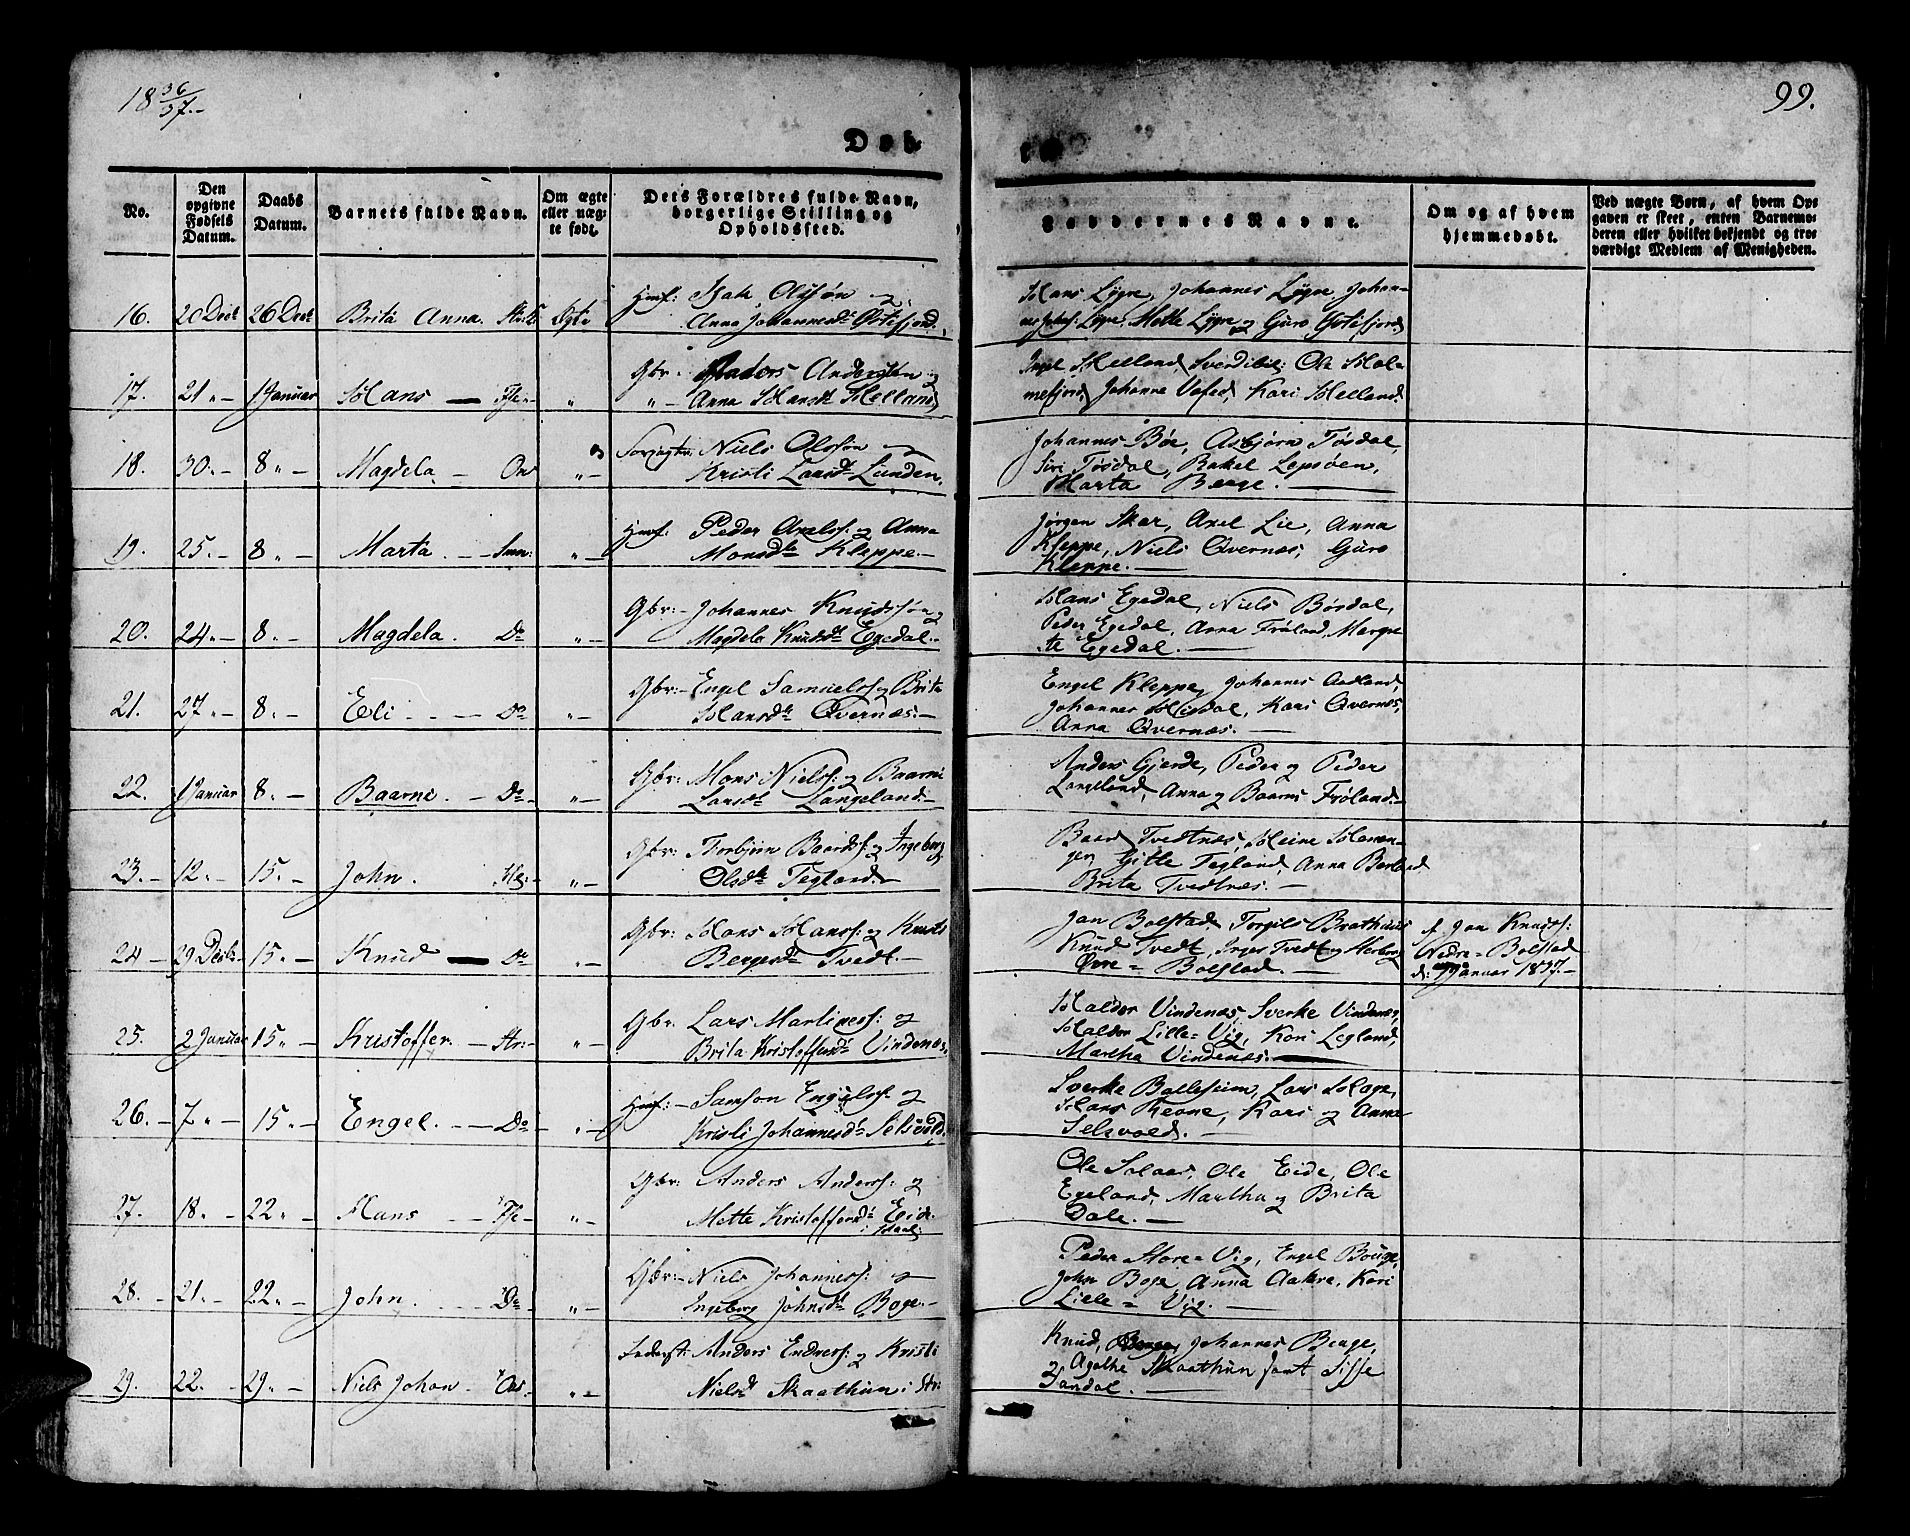 18 36/37.
99.
Døb-
te
No.
Den opgivne Fødsels Datum.
Daabs Datum.
Barnets fulde Navn.
Om ægte eller uæg- te født.
Dets Forældres fulde Navn, borgerlige Stilling og Opholdssted.
Faddernes Navne.
Om og af hvem hjemmedøbt.
Ved uægte Børn, af hvem Op- gaven er skeet, enten Barnemo- deren eller hvilket bekjendt og tro- værdigt Medlem af Menigheden.
16. 20 Decb 26 Decb Brita Anna. Ægte Huusf: Isak Olssøn og
Anna Johannesdt Østefjord.
Hans Lygre, Johannes Lygre, Johan-
nes Lygre, Mette Lygre og Guro Østefjord
17. 21 "- 1 Januar Hans "- Gbr: Anders Anderssen og
Anna Hansdt Helland
Helland, Ole Hol-
mefjord, Johanne Kari Helland.
18. 30 "- 8 "- Magdela - "- Niels Olssøn og
Kristi Larsdt Lunden.
Johannes Bøe, Asbjørn Tøsdal,
Siri Tøsdal, Rakel Lepsøen,
Marta Berge.
19. 25 "- 8 "- Marta - "- Hmf: Peder Axelss: og Anna
Monsdt Kleppe.
Jørgen Skar, Axel Lie, Anna
Kleppe, Niels Qvernæs, Guro
Kleppe.
20. 24 "- 8 "- Magdela. Do "- Gbr: Johannes Knudssøn og
Magdela Knudsdt Egedal.
Hans Egedal, Niels Børdal,
Peder Egedal, Anna Frøland, Margre-
te Egedal.
21. 27 "- 8 "- Eli - Do "- Gbr: Engel Samuelss og Brita
Hansdt Qvernæs.
Engel Kleppe, Johannes Aadland,
Johannes Kari Qvernæs,
Anna Qvernæs.
22. 1 Januar 8 "- Baarni - Do "- Gbr: Mons Nielss: og Baarni
Larsdt Langeland.
Anders Gjerde, Peder og Peder
Langeland, Anna og Baarni Frøland.
23. 12 "- 15 "- John. "- Gbr: Torbjørn Baardss: og Ingeborg
Olsdt Tegland.
Baard Tvedtnæs,
Gitle Tegland, Anna Berland
Brita Tvedtnæs.
24 - 29 Decbr 15 "- Knud - Do "- Gbr: Hans Hanss: og Kristi
Bergesdt Tvedt.
Jan Bolstad, Torgils
Knud Tvedt, Inger Tvedt og Herborg
Øvre = Bolstad.
af Jan Knudss:
Nedre = Bolstad
d: Januar 1837.
25. 2 Januar 15 "- Kristoffer. "- Gbr: Lars Martiness: og
Brita Kristoffersdt Vindenæs.
Haldor Vindenæs, Sverke Vindenæs,
Haldor Lille = Vig, Kari Legland,
Martha Vindenæs.
26. 7 "- 15 "- Engel. Do "- Hmf: Samson Engelss: og
Kristi Johannesdt Selsvold.
Sverke Lars Hage,
Hans Kari og Anna
Selsvold.
27. 18 "- 22 "- Hans "- Gbr: Anders Anderss: og
Mette Kristoffersdt Eide.
Ole Salaas, Ole Eide, Ole
Egeland, Martha og Brita
Dale.
28. 21 "- 22 "- John Do "- Gbr: Niels Johanness: og
Ingeborg Johnsdt Boge.
Peder Store = Vig, Engel Bouge,
John Boge, Anna Aakre, Kari
Lille = Vig.
29. 22 "- 29 "- Niels Johan "- Anders Endress: og Kristi
Nielsdt Skaathun i
Knud, Johannes Berge,
Agathe Skaathun samt Sisse